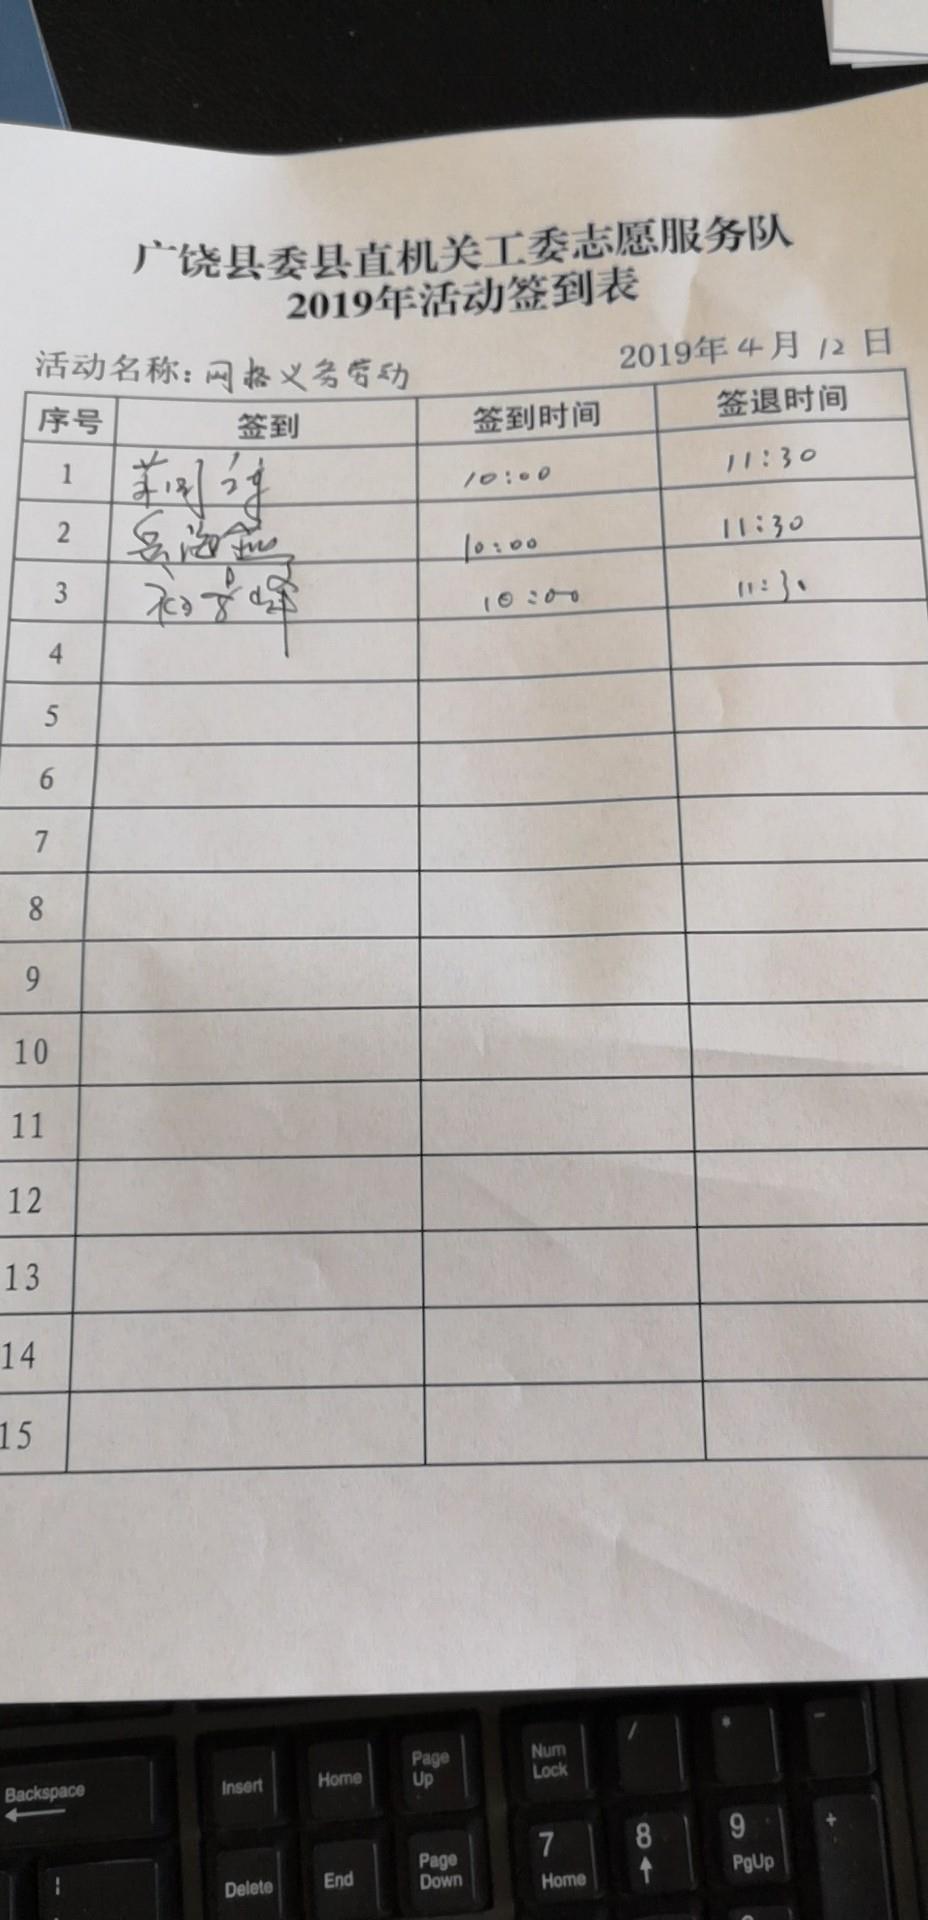 广饶县委县直机关工委志愿服务队
2019年活动签到表
活动名称: 网格义务劳动 2019年4月12日
序号 签到 签到时间 签退时间
1 10:00 11:30
2 10:00 11:30
3 10:00 11:30
4
5
6
7
8
9
10
11
12
13
14
15
Backspace Insert Home Page Up Num Lock / * -
Delete End Page Down 7 Home 8 9 PgUp +